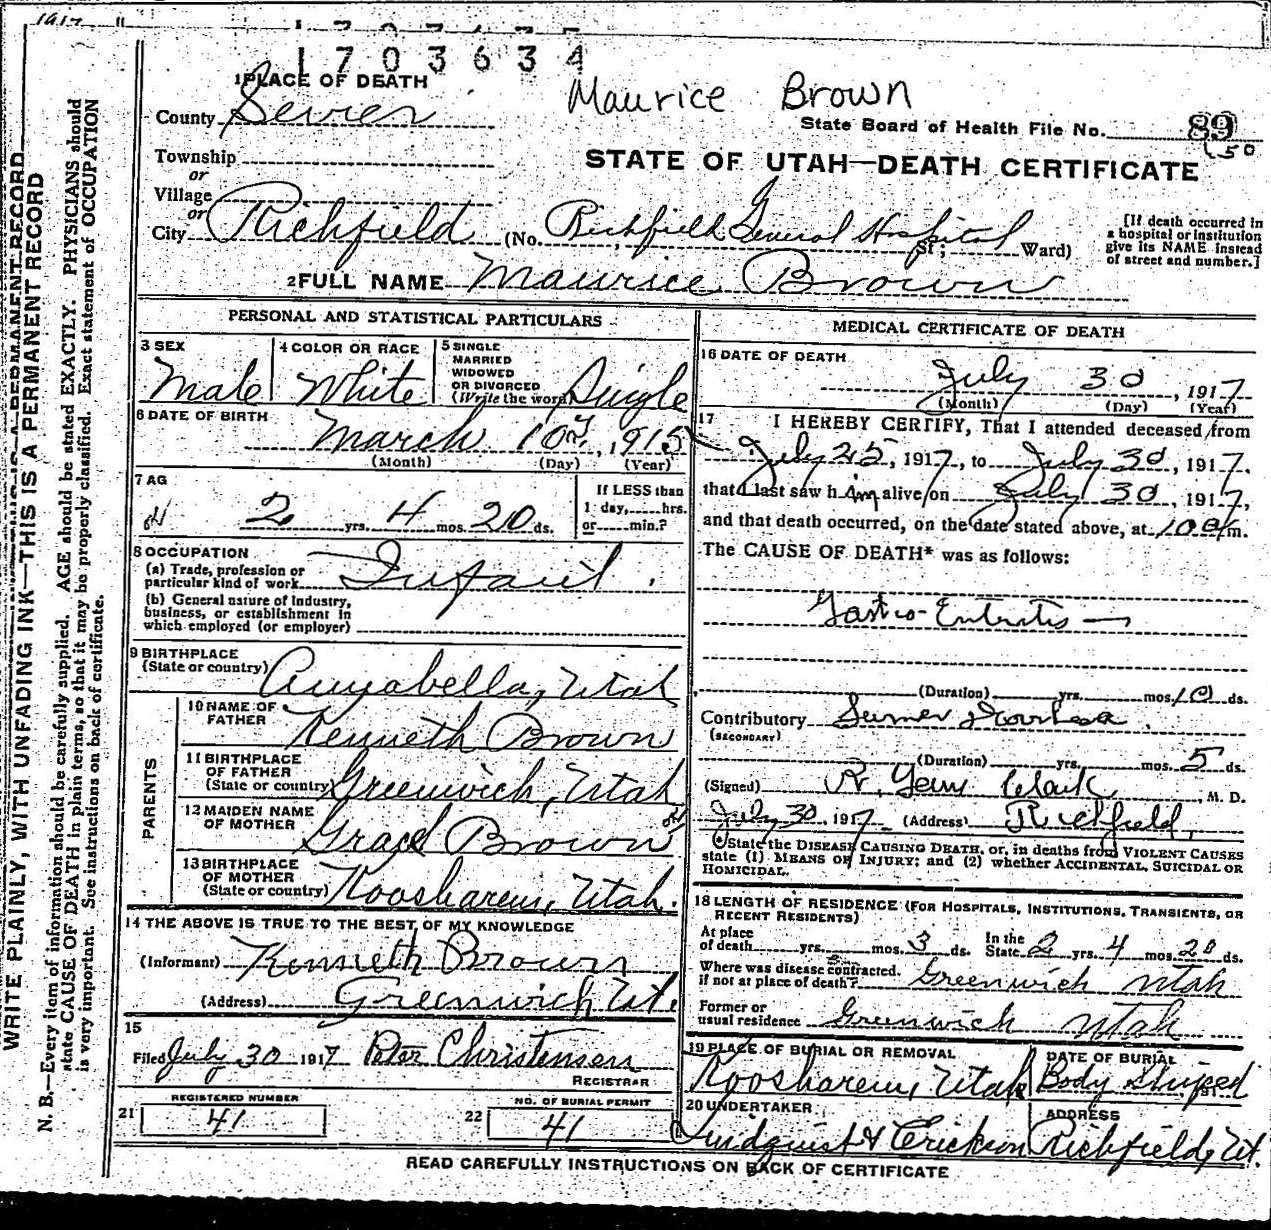 1917
1 7 0 3 6 3 4
Maurice Brown
1 PLACE OF DEATH
County Sevier
State Board of Health File No. 89
150
STATE OF UTAH—DEATH CERTIFICATE
Township
or
Village
or
City Richfield (No. Richfield General Hospital St; Ward)
[If death occurred in
a hospital or institution
give its NAME instead
of street and number.]
2 FULL NAME Maurice Brown
PERSONAL AND STATISTICAL PARTICULARS
3 SEX
Male
4 COLOR OR RACE
White
5 SINGLE
MARRIED
WIDOWED
OR DIVORCED
(Write the word) Single
6 DATE OF BIRTH
March 10, 1915
(Month) (Day) (Year)
7 AG
2 yrs. 4 mos. 20 ds.
If LESS than
1 day, hrs.
or min.?
8 OCCUPATION
(a) Trade, profession or
particular kind of work Infant.
(b) General nature of Industry,
business, or establishment in
which employed (or employer)
9 BIRTHPLACE
(State or country) Annabella, Utah
PARENTS
10 NAME OF
FATHER Kenneth Brown
11 BIRTHPLACE
OF FATHER
(State or country) Greenwich, Utah
12 MAIDEN NAME
OF MOTHER Grace Brown
13 BIRTHPLACE
OF MOTHER
(State or country) Koosharem, Utah.
14 THE ABOVE IS TRUE TO THE BEST OF MY KNOWLEDGE
(Informant) Kenneth Brown
(Address) Greenwich Ut.
15
Filed July 30 1917 Peter Christensen
REGISTRAR
21 REGISTERED NUMBER
41
22 NO. OF BURIAL PERMIT
41
MEDICAL CERTIFICATE OF DEATH
16 DATE OF DEATH
July 30, 1917
(Month) (Day) (Year)
17 I HEREBY CERTIFY, That I attended deceased from
July 25, 1917, to July 30, 1917.
that I last saw him alive on July 30, 1917,
and that death occurred, on the date stated above, at 10 a m.
The CAUSE OF DEATH* was as follows:
Gastro-Entritis
(Duration) yrs. mos. 10 ds.
Contributory Sumer Diorrhea.
(SECONDARY)
(Duration) yrs. mos. 5 ds.
(Signed) R. Clark, M. D.
July 30, 1917 (Address) Richfield,
*State the DISEASE CAUSING DEATH, or, in deaths from VIOLENT CAUSES
state (1) MEANS OF INJURY; and (2) whether ACCIDENTAL, SUICIDAL OR
HOMICIDAL.
18 LENGTH OF RESIDENCE (FOR HOSPITALS, INSTITUTIONS, TRANSIENTS, OR
RECENT RESIDENTS)
At place
of death yrs. mos. 3 ds. In the
State 2 yrs. 4 mos. 20 ds.
Where was disease contracted.
if not at place of death? Greenwich Utah
Former or
usual residence Greenwich Utah
19 PLACE OF BURIAL OR REMOVAL
Koosharem, Utah
DATE OF BURIAL
Body Shiped
191
20 UNDERTAKER
Lindquist & Erickson
ADDRESS
Richfield, Ut.
READ CAREFULLY INSTRUCTIONS ON BACK OF CERTIFICATE
WRITE PLAINLY, WITH UNFADING INK—THIS IS A PERMANENT RECORD
N. B.—Every item of information should be carefully supplied. AGE should be stated EXACTLY. PHYSICIANS should
state CAUSE OF DEATH in plain terms, so that it may be properly classified. Exact statement of OCCUPATION
is very important. See instructions on back of certificate.